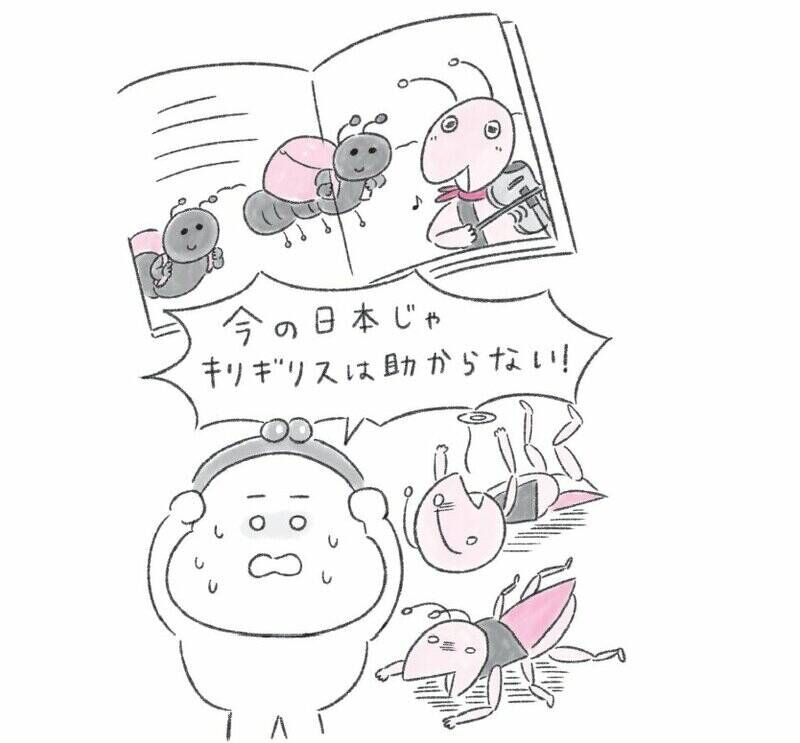 今の日本じゃ
キリギリスは助からない!